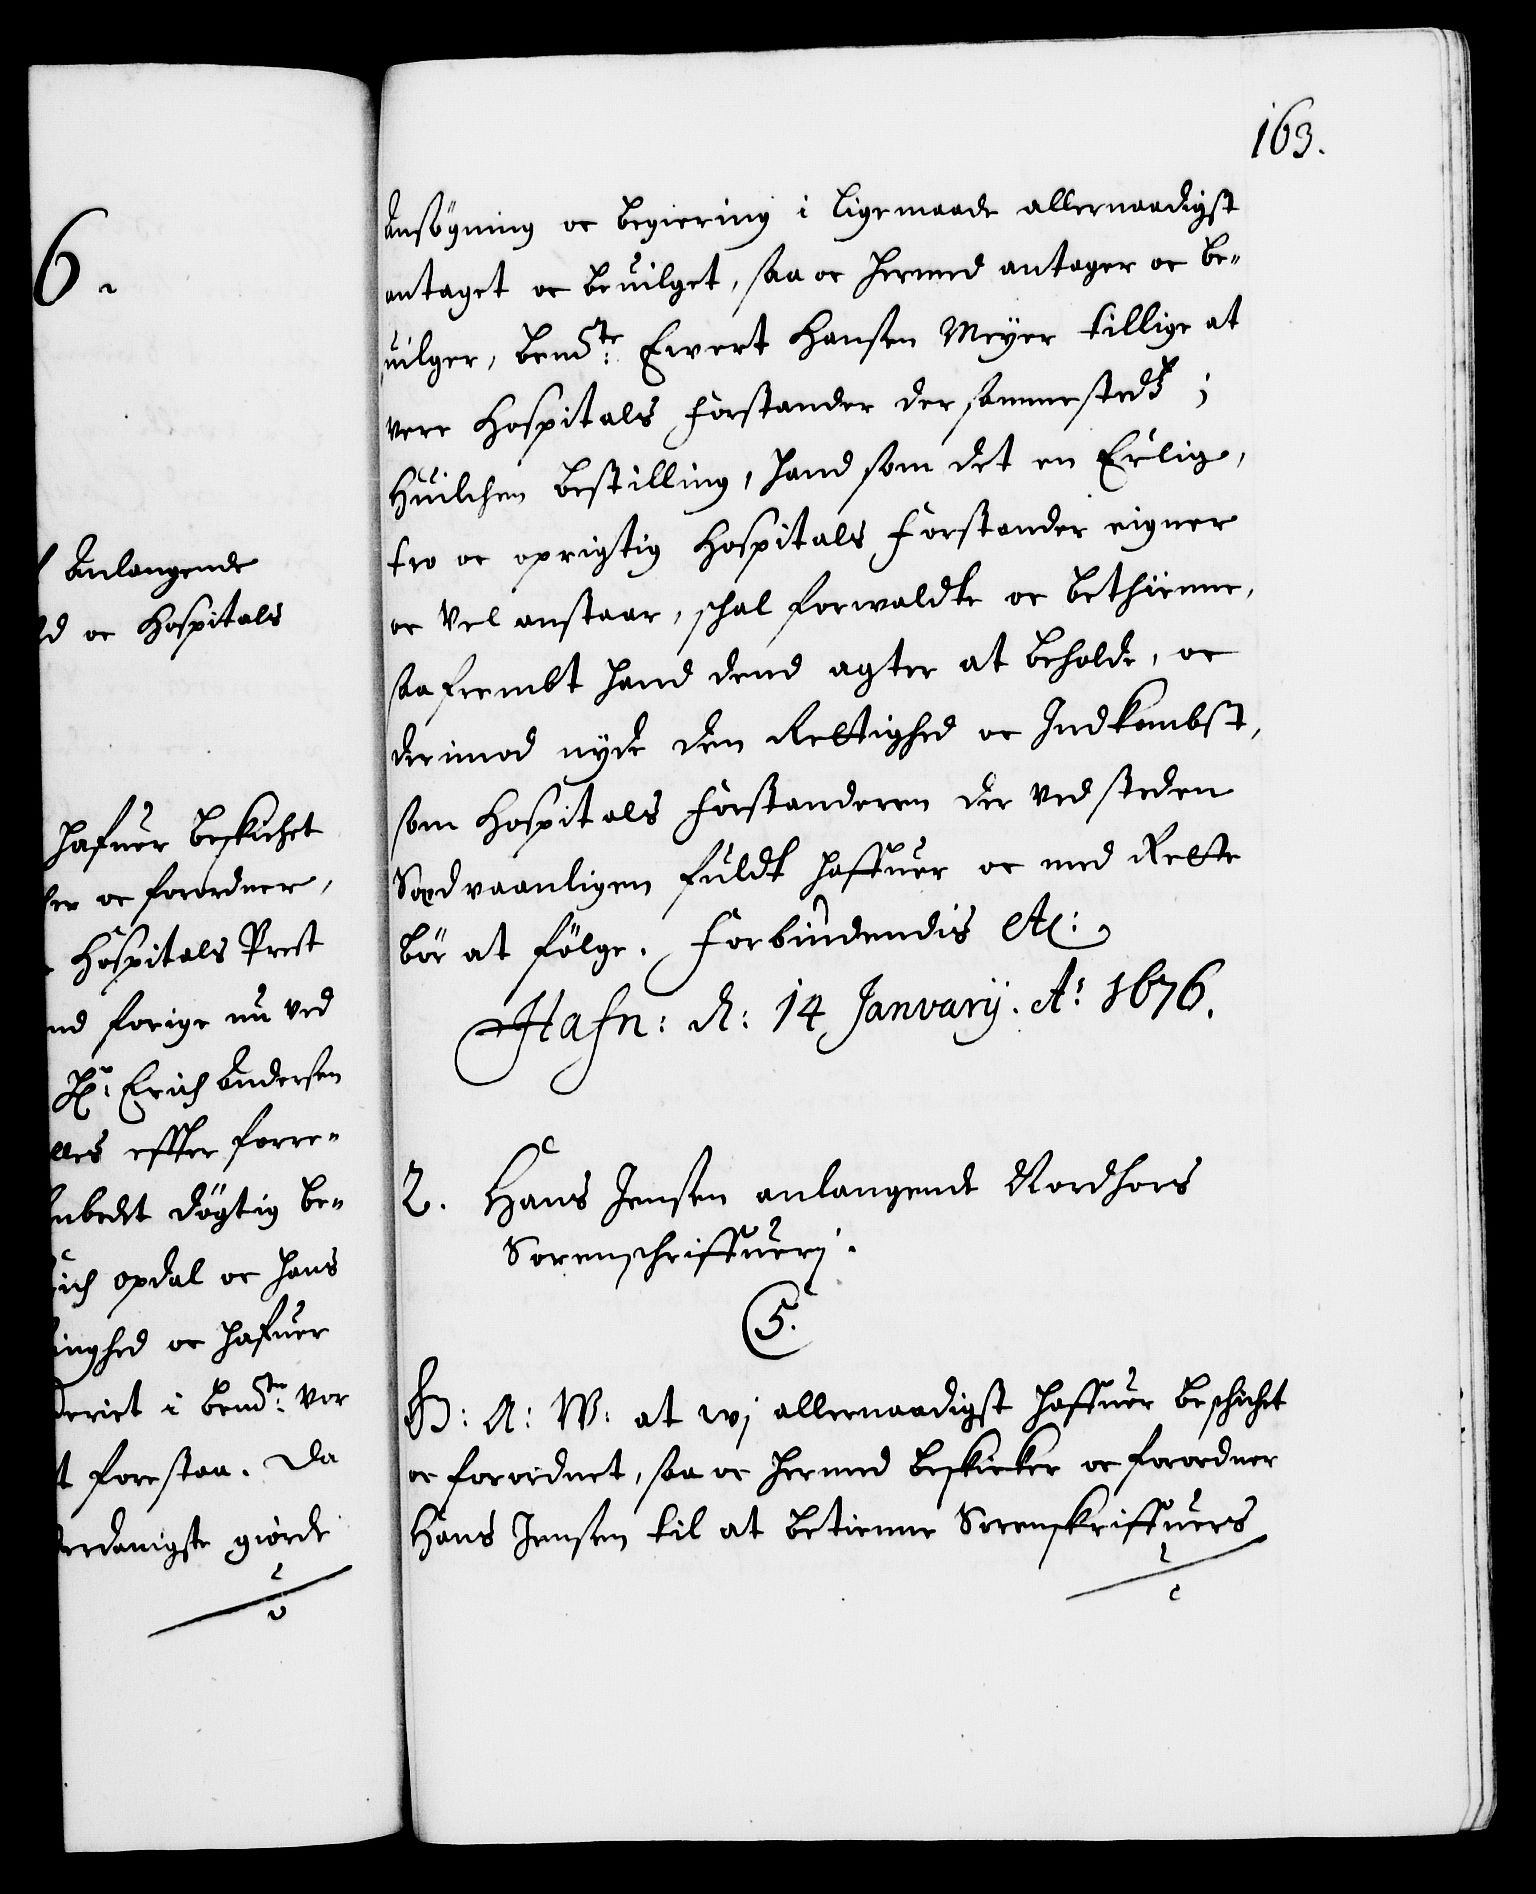 6.
Anlangende
d oc Hospitals
hafuer beskichet
er oc forordner,
Hospitals Prest
nd forige nu ved
Hr: Erich Andersen
lles effter forre-
nbedet dögtig be-
ich opdal oc hans
inghed oc hafuer
deriet i bemte: vor
t forestaa. Da
erdanigste giorde
163.
Ansögning oc begiering i ligemaade allernaadigst
antaget oc beuilget, saa oc hermed antager oc be-
uilger, bemte: Ewert Hansen Meyer tillige at
vere Hospitals forstander der sammestedtz;
Huilchen bestilling, hand som det en Erlig,
tro oc oprigtig Hospitals forstander eigner
oc vel anstaar, schal forwaldte oc bethienne,
saafrembt hand dend agter at beholde, oc
derimod nyde den Rettighed oc Indkombst,
som Hospitals forstanderen der ved steden
Sædvaanligen fuldt haffuer oc med Rette
bör at fölge. Forbindendis etc:
Hafn: d: 14 Januarij. Ao 1676.
2. Hans Jensen anlangende Nordhors
Sorenschriffuerj.
C5.
G: A: W: at wj allernaadigst haffuer beschichet
oc forordnet, saa oc hermed beskicker oc forordner
Hans Jensen til at betienne Sorenskriffuers